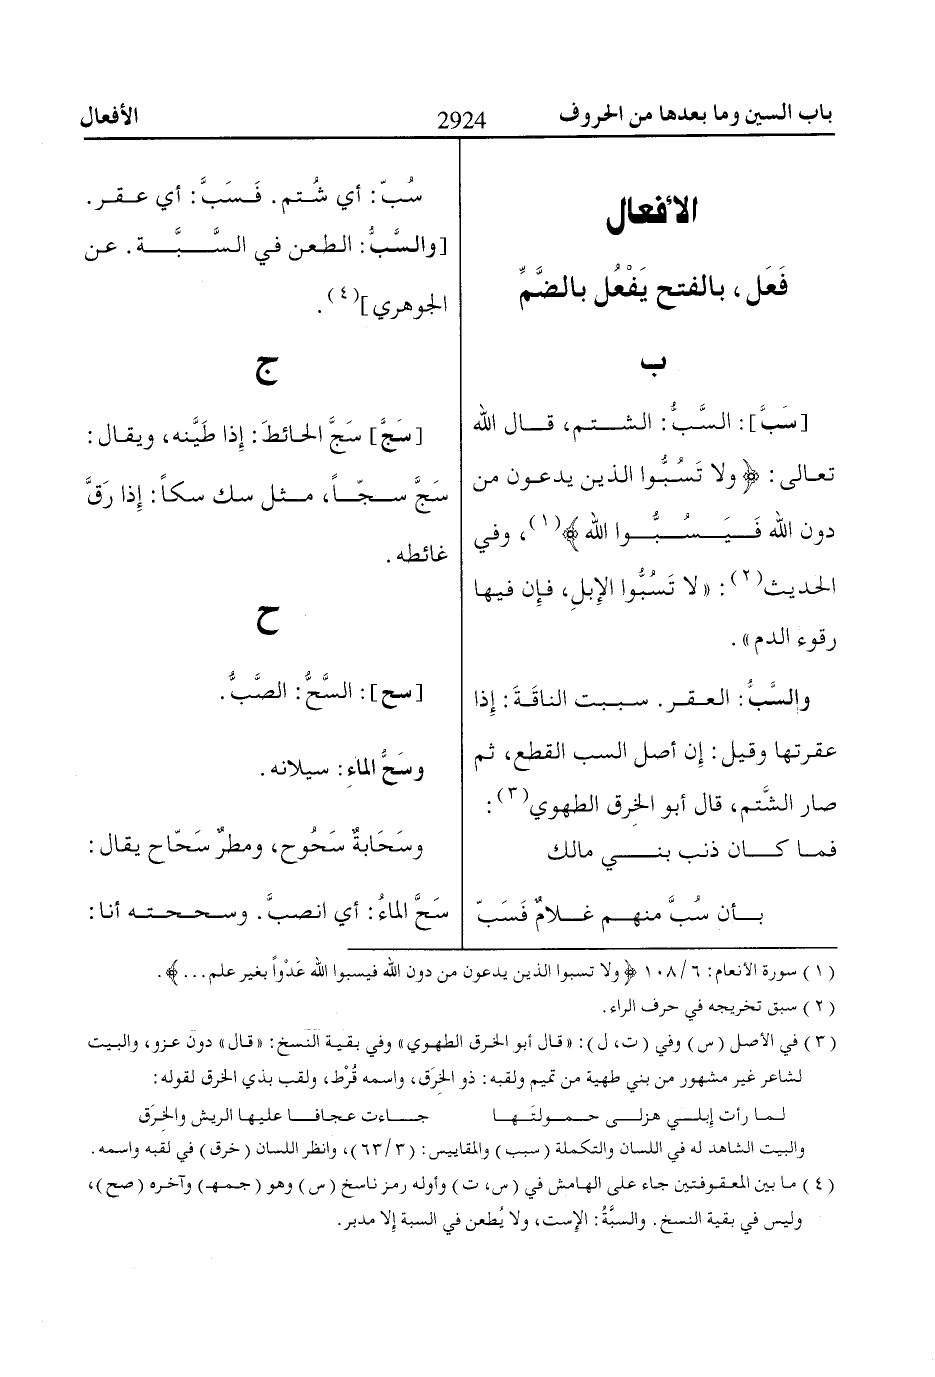 باب السين وما بعدها من الحروف
2924
الأفعال
الأفعال
فَعَل، بالفتح يَفْعُل بالضَّمِّ
ب
[سَبَّ]: السَّبُّ: الشــتــم، قــال الله
تعالى: ﴿ولا تَسُبُّوا الذين يدعون من
دون الله فَــيَــسُــبُّــوا الله﴾(١)، وفي
الحديث(٢): «لا تَسُبُّوا الإبل، فإن فيها
رقوء الدم».
والسَّبُّ: العقر. سببت الناقَةَ: إذا
عقرتها وقيل: إن أصل السب القطع، ثم
صار الشَّتم، قال أبو الخرق الطهوي(٣):
فمـا كــان ذنب بنــي مالك
بــأن سُبَّ منهــم غــلامٌ فَسَبّ
سُبّ: أي شُتم. فَسَبَّ: أي عقر.
[والسَّبُّ: الطعن في السَّبَّــة. عن
الجوهري](٤).
ج
[سَجَّ] سَجَّ الحائطَ: إذا طَيَّنه، ويقال:
سَجَّ سجّــاً، مثل سك سكاً: إذا رَقَّ
غائطه.
ح
[سح]: السَّحُّ: الصَّبُّ.
وسَحُّ الماءِ: سيلانه.
وسَحَابةٌ سَحُوح، ومطرٌ سَحّاح يقال:
سَحَّ الماءُ: أي انصبَّ. وسححته أنا:
(١) سورة الأنعام: ٦/ ١٠٨ ﴿ولا تسبوا الذين يدعون من دون الله فيسبوا الله عَدْواً بغير علم...﴾.
(٢) سبق تخريجه في حرف الراء.
(٣) في الأصل (س) وفي (ت، ل): «قال أبو الخرق الطهوي» وفي بقية النسخ: «قال» دون عزو، والبيت
لشاعر غير مشهور من بني طهية من تميم ولقبه: ذو الخِرَق، واسمه قُرْط، ولقب بذي الخرق لقوله:
لمـا رأت إبلــي هزلــى حمــولتَهــا جــاءت عجافــا عليهـا الريش والخِرَق
والبيت الشاهد له في اللسان والتكملة (سبب) والمقاييس: (٣/ ٦٣)، وانظر اللسان (خرق) في لقبه واسمه.
(٤) ما بين المعقوفتين جاء على الهامش في (س، ت) وأوله رمز ناسخ (س) وهو (جمهـ) وآخره (صح)،
وليس في بقية النسخ. والسبَّةُ: الإست، ولا يُطعن في السبة إلا مدبر.